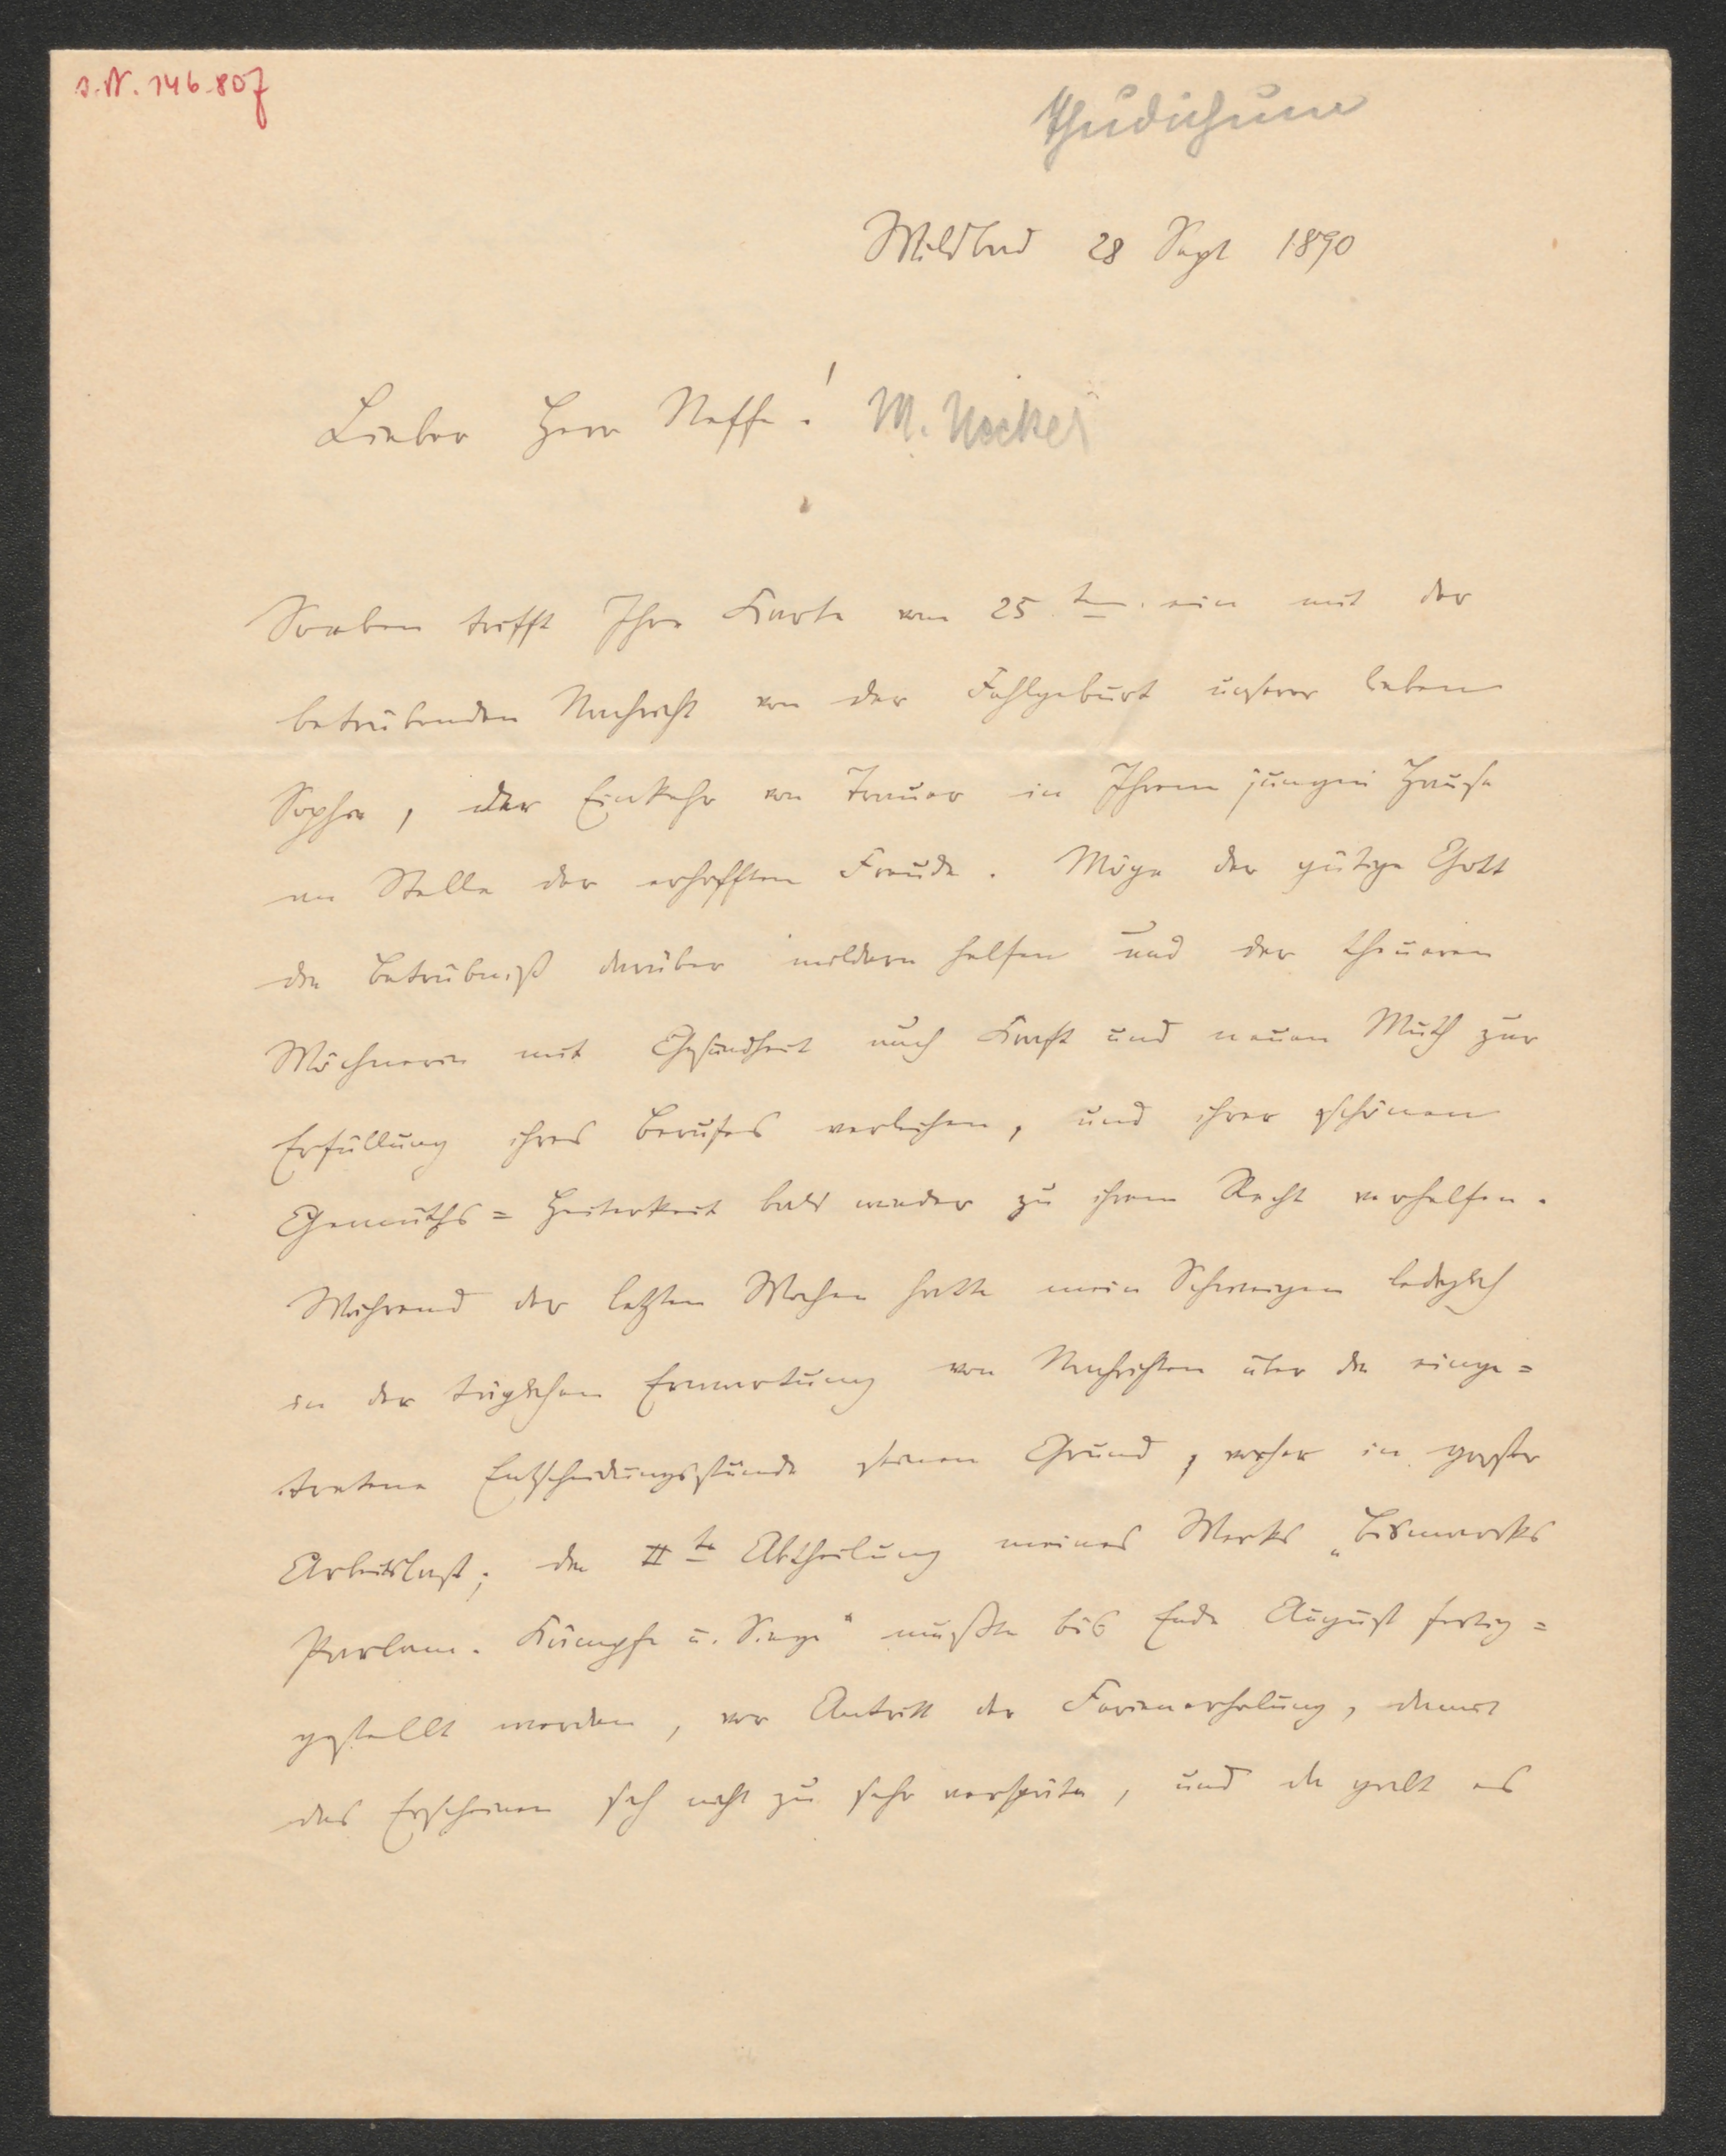 I.N. 146.807
Thudichum
Wildbad 28 Sept 1890
Lieber Herr Neffe! M. Necker
Soeben trifft Ihre Karte vom 25ten. ein mit der
betrübenden Nachricht von der Fehlgeburt unserer lieben
Sophie, der Einkehr von Trauer in Ihrem jungen Hause
an Stelle der erhofften Freude. Möge der gütige Gott
die Betrübniß darüber mildern helfen und der theueren
Wöchnerin mit Gesundheit auch Kraft und neuen Muth zur
Erfüllung ihres Berufes verleihen, und ihrer schönen
Gemüths= Heiterkeit bald wieder zu ihrem Recht verhelfen.
Während der letzten Wochen hatte mein Schweigen lediglich
in der täglichen Erwartung von Nachrichten über die einge=
tretene Entscheidungsstunde seinen Grund, vorher in großer
Arbeitslast; die IIte Abtheilung meines Werks „Bismarcks
Parlam. Kämpfe u. Siege" mußte bis Ende August fertig=
gestellt werden, vor Antritt der Ferienerholung, damit
das Erscheinen sich nicht zu sehr verspäte, und da galt es